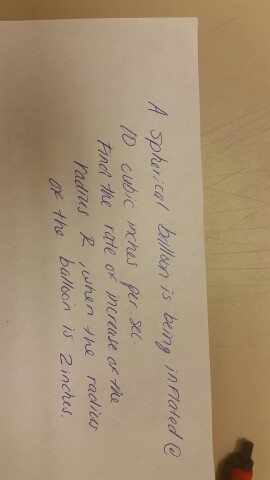 A spherical balloon is being inflated @
10 cubic inches per sec.
Find the rate of increase of the
radius R, when the radius
of the balloon is 2 inches.